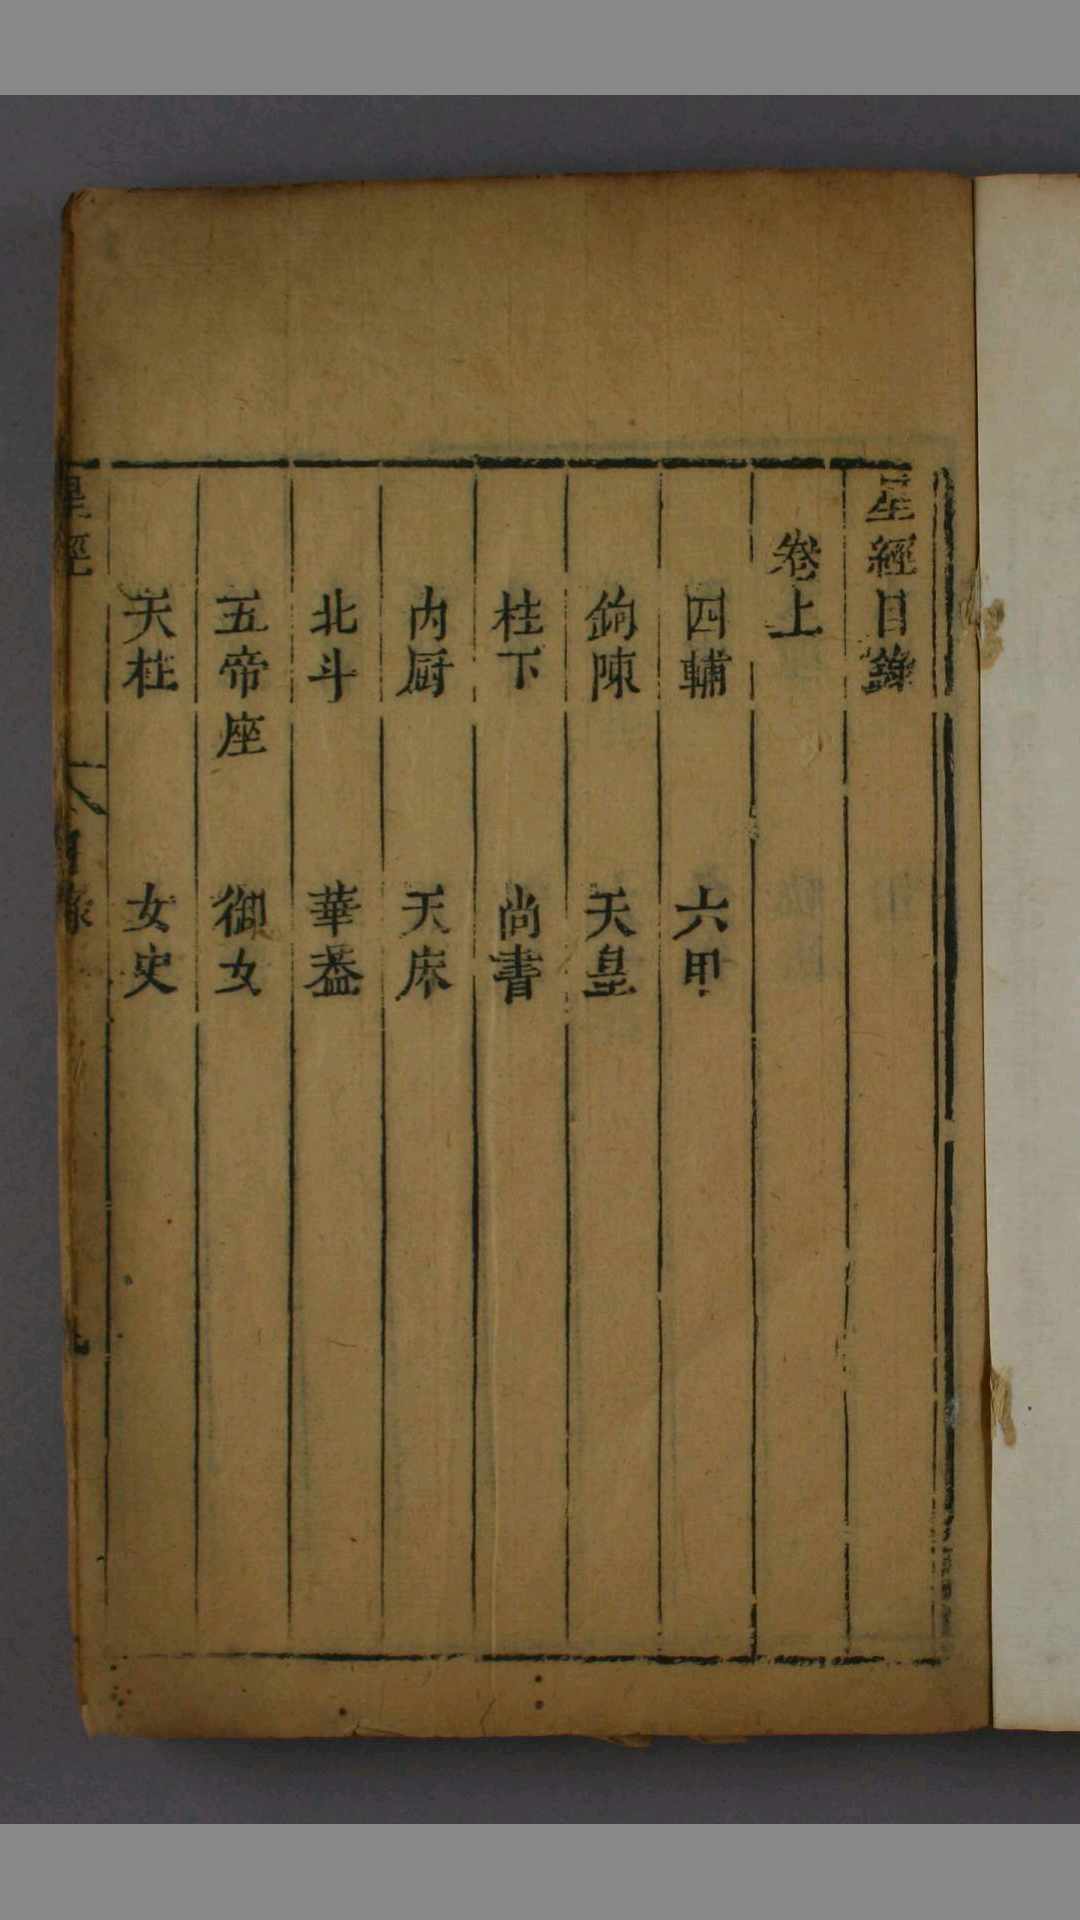 星經目錄
卷上
四輔 六甲
鉤陳 天皇
柱下 尚書
內厨 天床
北斗 華葢
五帝座 御女
天柱 女史
星經 目錄